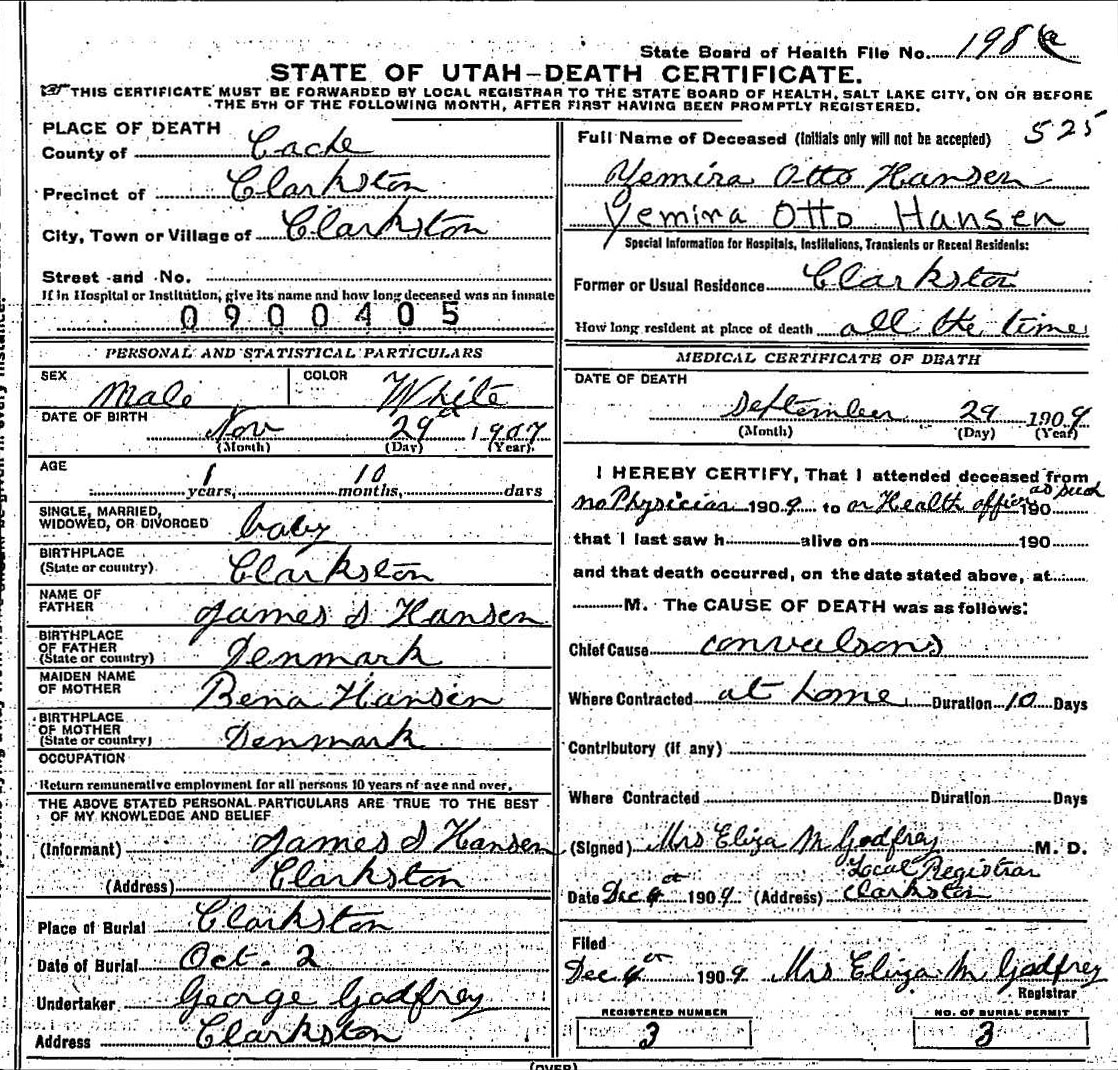 State Board of Health File No. 198
STATE OF UTAH-DEATH CERTIFICATE.
THIS CERTIFICATE MUST BE FORWARDED BY LOCAL REGISTRAR TO THE STATE BOARD OF HEALTH, SALT LAKE CITY, ON OR BEFORE
THE 5TH OF THE FOLLOWING MONTH, AFTER FIRST HAVING BEEN PROMPTLY REGISTERED.
PLACE OF DEATH
County of Cache
Precinct of Clarkston
City, Town or Village of Clarkston
Street and No.
If in Hospital or Institution, give its name and how long deceased was an inmate
0900405
PERSONAL AND STATISTICAL PARTICULARS
SEX Male COLOR White
DATE OF BIRTH Nov 29 1907
(Month) (Day) (Year)
AGE 1 years, 10 months, days
SINGLE, MARRIED,
WIDOWED, OR DIVORCED baby
BIRTHPLACE
(State or country) Clarkston
NAME OF
FATHER James S Hansen
BIRTHPLACE
OF FATHER
(State or country) Denmark
MAIDEN NAME
OF MOTHER Bena Hansen
BIRTHPLACE
OF MOTHER
(State or country) Denmark
OCCUPATION
Return remunerative employment for all persons 10 years of age and over.
THE ABOVE STATED PERSONAL PARTICULARS ARE TRUE TO THE BEST
OF MY KNOWLEDGE AND BELIEF
(Informant) James S Hansen
(Address) Clarkston
Place of Burial Clarkston
Date of Burial Oct. 2
Undertaker George Godfrey
Address Clarkston
Full Name of Deceased (Initials only will not be accepted) 525
Yemira Otto Hansen
Yemira Otto Hansen
Special Information for Hospitals, Institutions, Transients or Recent Residents:
Former or Usual Residence Clarkston
How long resident at place of death all the time
MEDICAL CERTIFICATE OF DEATH
DATE OF DEATH
September 29 1909
(Month) (Day) (Year)
I HEREBY CERTIFY, That I attended deceased from
no Physician 1909 to or Health officer as such 190
that I last saw h alive on 190
and that death occurred, on the date stated above, at
M. The CAUSE OF DEATH was as follows:
Chief Cause convulsons
Where Contracted at home Duration 10 Days
Contributory (if any)
Where Contracted Duration Days
(Signed) Mrs Eliza M Godfrey M. D.
Local Registrar
Date Dec 4 1909 (Address) Clarkston
Filed
Dec 4 1909 Mrs Eliza M Godfrey
Registrar
REGISTERED NUMBER
3
NO. OF BURIAL PERMIT
3
(OVER)